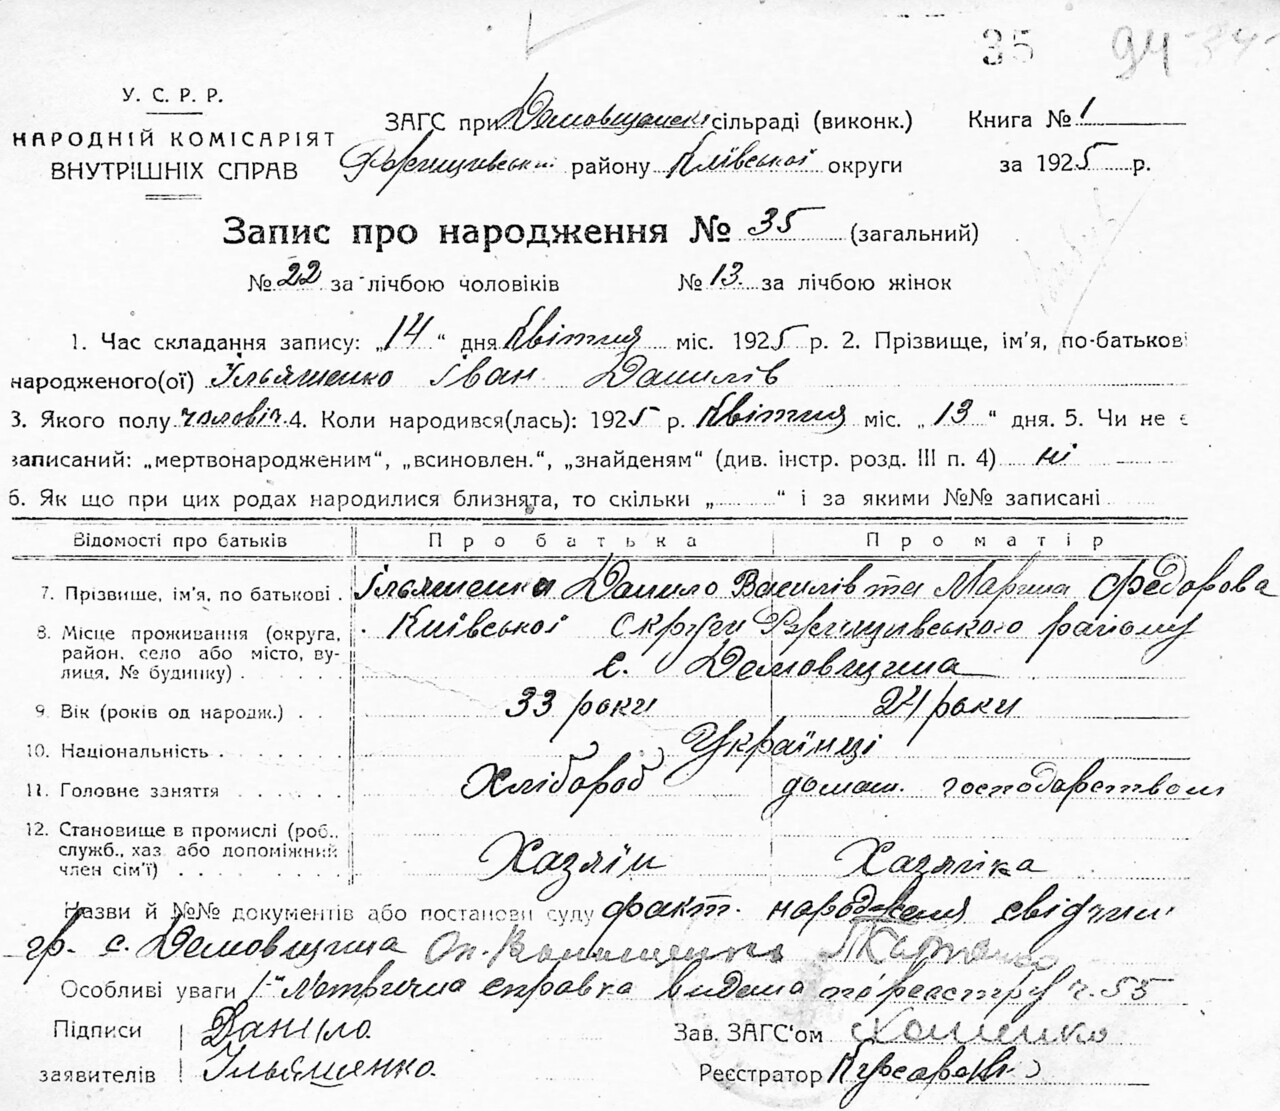 35 94
У. С. Р. Р.
НАРОДНІЙ КОМІСАРІЯТ
ВНУТРІШНІХ СПРАВ
ЗАГС при Демовщанськ сільраді (виконк.) Книга № 1
Ржищівськ району Київської округи за 1925 р.
Запис про народження № 35 (загальний)
№ 22 за лічбою чоловіків № 13 за лічбою жінок
1. Час складання запису: „14“ дня Квітня міс. 1925 р. 2. Прізвище, ім'я, по-батькові
народженого(ої) Ільяшенко Іван Данилів
3. Якого полу чоловіч. 4. Коли народився(лась): 1925 р. Квітня міс. „13“ дня. 5. Чи не є
записаний: „мертвонародженим“, „всиновлен.“, „знайденям“ (див. інстр. розд. III п. 4) ні
6. Як що при цих родах народилися близнята, то скільки „ “ і за якими №№ записані
Відомості про батьків Про батька Про матір
7. Прізвище, ім'я, по батькові . Ільяшенки Данило Василів та Марина Федорова
8. Місце проживання (округа, район. село або місто, вулиця, № будинку) . Київської округи Ржищівського району
с. Демовщина
9. Вік (років од народж.) . . 33 роки 24 роки
10. Національність . Українці
11. Головне заняття Хлібороб домаш. господарством
12. Становище в промислі (роб.. служб., хаз. або допоміжний член сім'ї) . Хазяїн Хазяйка
Назви й №№ документів або постанови суду факт. народження свідчили
гр. с. Демовщина
Особливі уваги Метрична справка видана по реестру ч. 55
Підписи Данило
заявителів Ільяшенко.
Зав. ЗАГС‘ом
Реєстратор